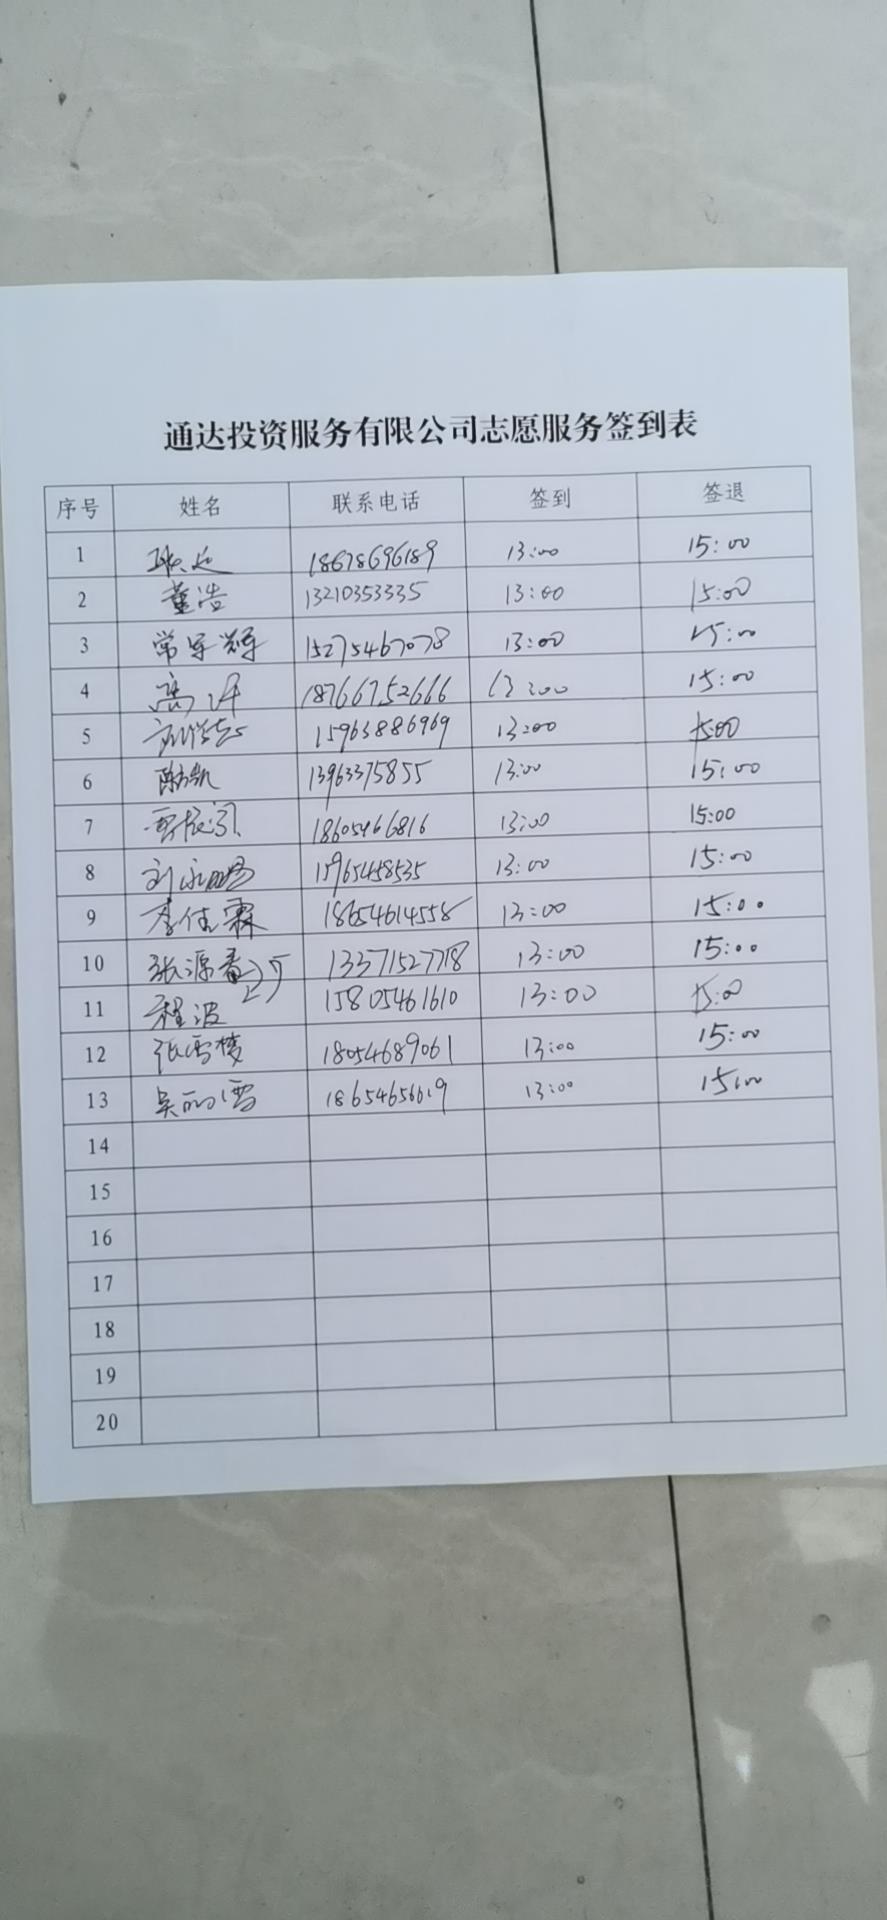 通达投资服务有限公司志愿服务签到表
序号 姓名 联系电话 签到 签退
1 18678696189 13:00 15:00
2 董浩 13210353335 13:00 15:00
3 常军辉 15275467078 13:00 15:00
4 高 18766752666 13:00 15:00
5 15963886969 13:00 15:00
6 13963375855 13:00 15:00
7 18605466816 13:00 15:00
8 刘 15965458535 13:00 15:00
9 李佳霖 18654614558 13:00 15:00
10 张源 13371527718 13:00 15:00
11 程波 15805461610 13:00 15:00
12 张雪梅 18054689061 13:00 15:00
13 吴丽雪 18654656619 13:00 15:00
14
15
16
17
18
19
20